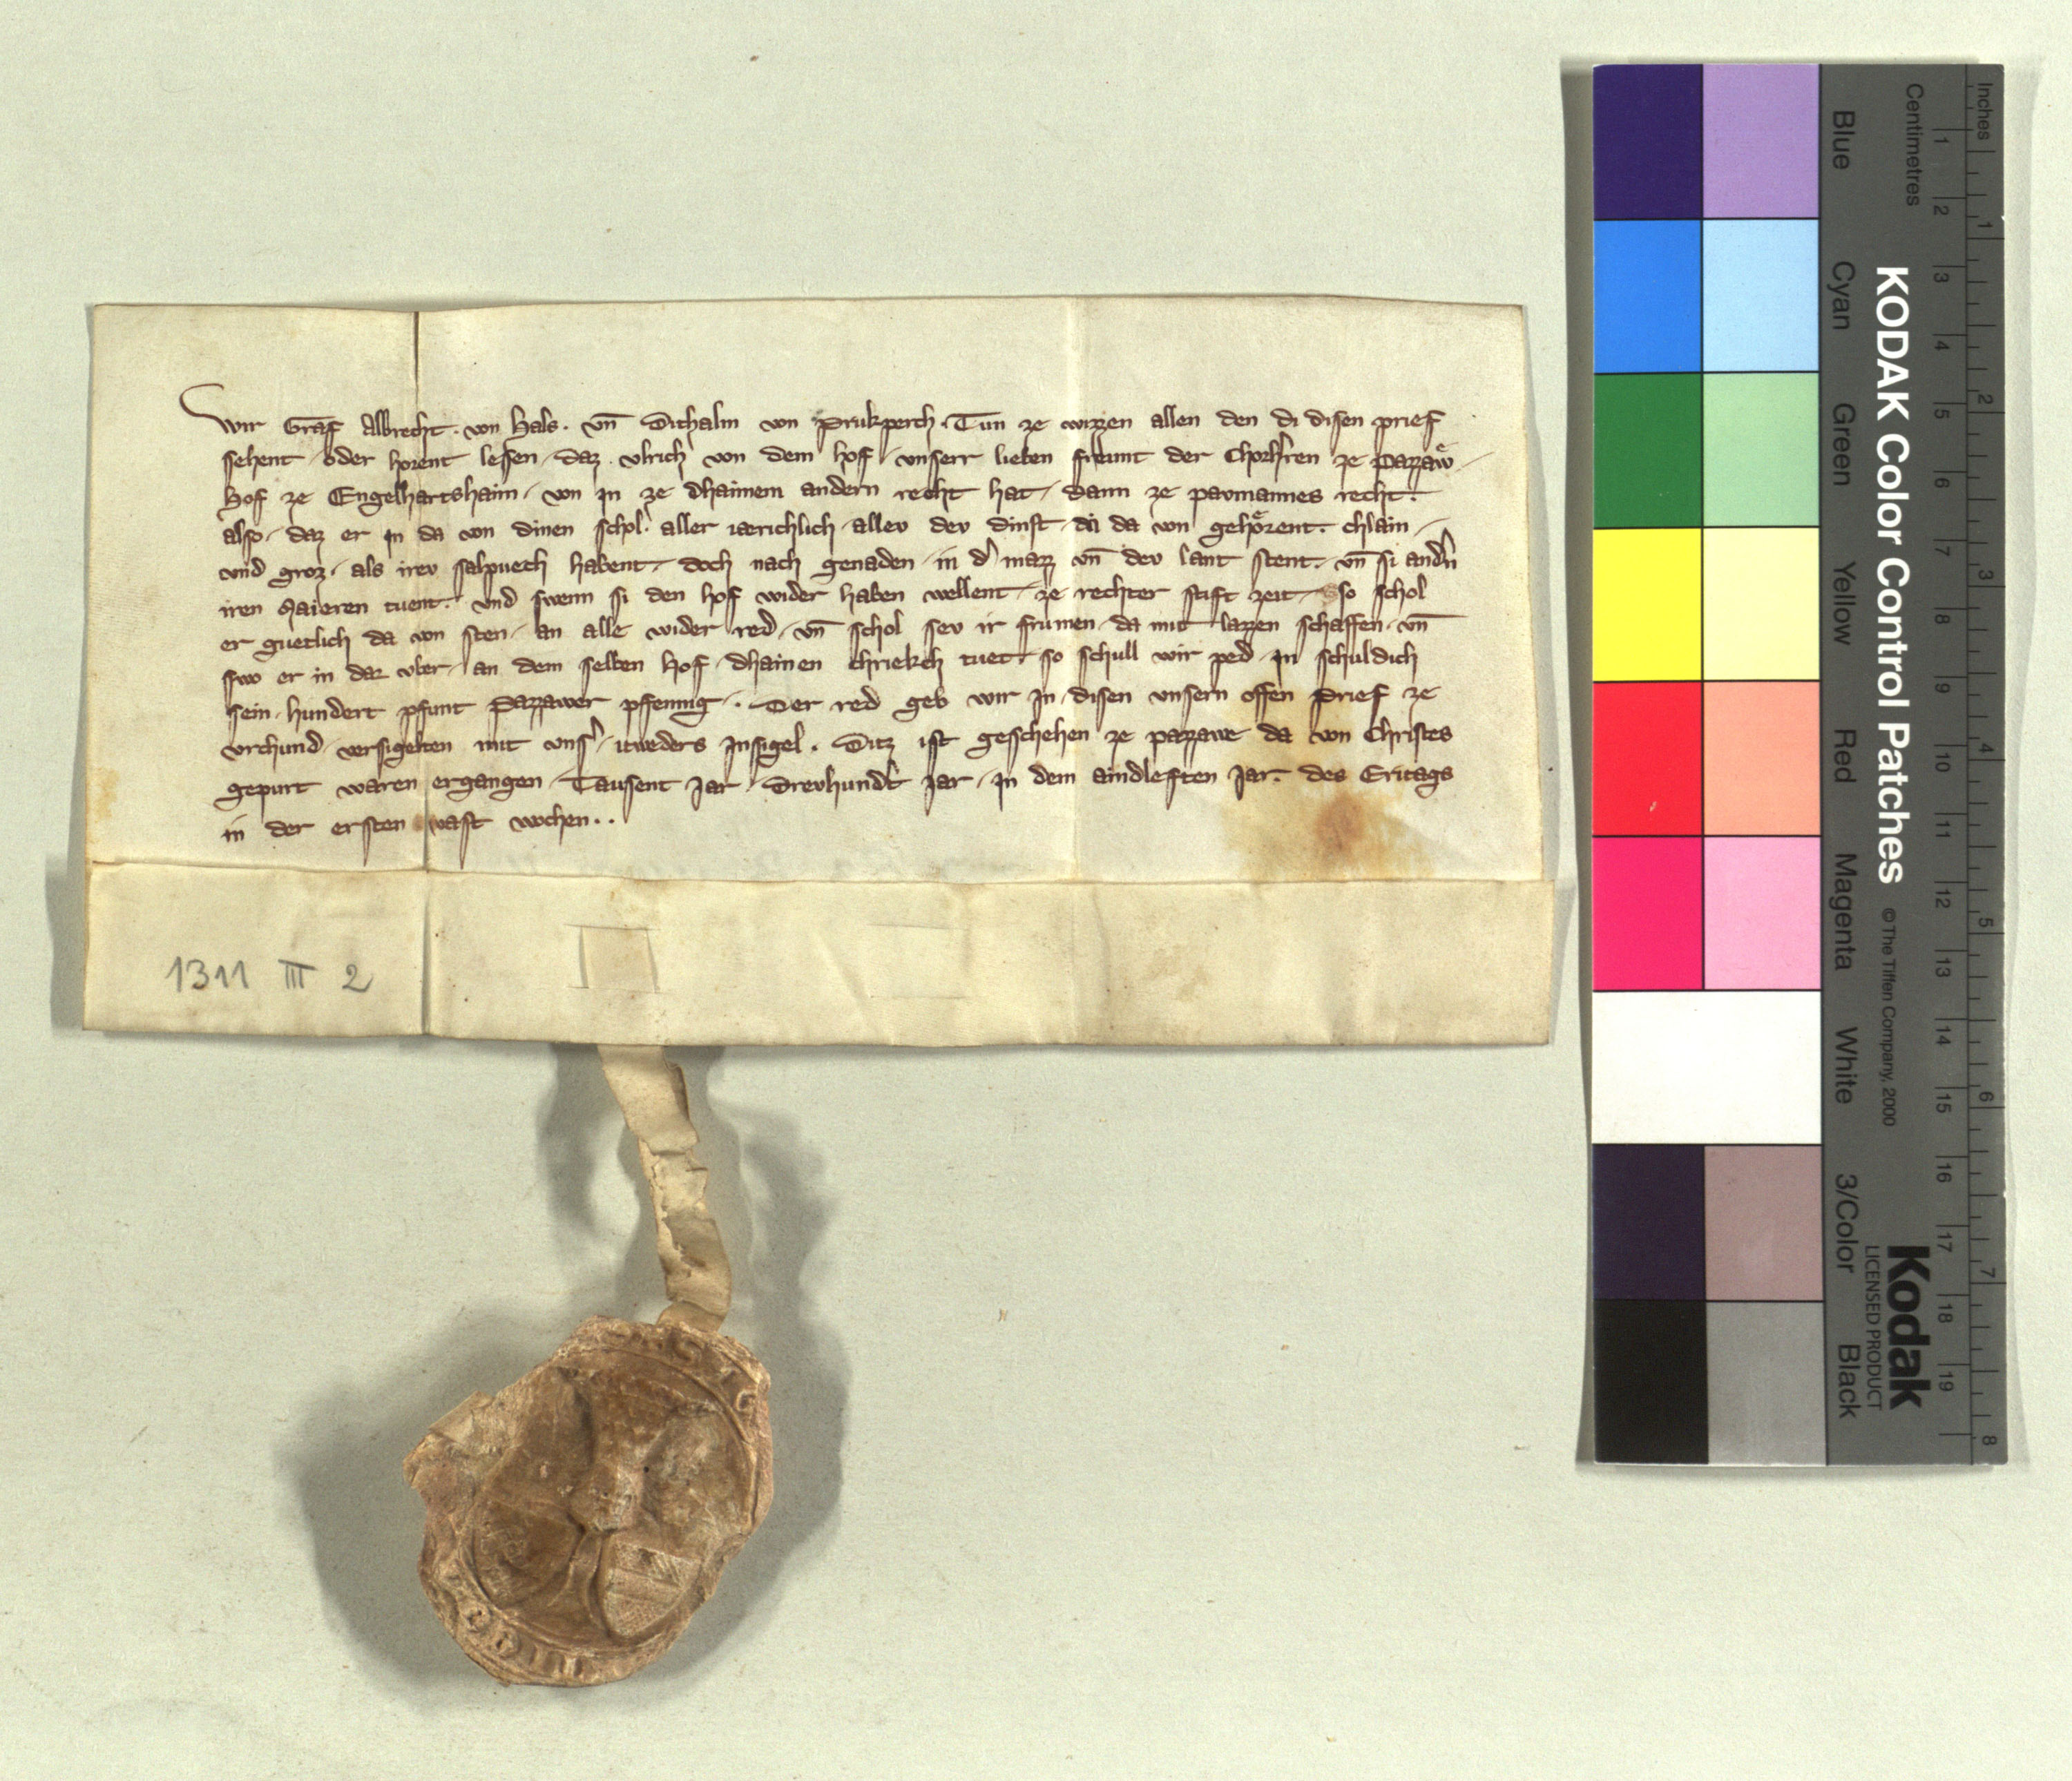 Wir Graf Albrecht. von Hals. vn̄ Dithalm von Prukperch. Tun ze wizzen allen den di disen prief
sehent oder horent lesen. daz. vlrich von dem Hof. vnserr lieben frevnt der Chorhˀren ze Pazzawͤ
Hof ze Engelhartshaim. von in ze dhainem andern recht hat. dann ze pavmannes recht.
also. daz er in da von dinen schol. aller iaerichlich allev dev dinst. di da von gehoͤrent. chlain.
vnd groz. als irev salpuech habent. doch nach genaden. in dˀ mazz vn̄ dev lant stent. vn̄ si andˀn
iren Maieren tuent. vnd swenn si den hof wider haben wellent. ze rechter stift zeit. so schol
er guetlich da von sten. an alle wider red. vn̄ schol sev ir frumen. da mit lazzen schaffen. vn̄
swo er in daz vber. an dem selben Hof. dhainen chriekch tuet. so schull wir ped. in schuldich
sein. hundert pfunt Pazzawer pfennig. Der red geb wir in disen vnsern offen Prief ze
vrchund. versigelten mit vnsˀ. itweders Insigel. Ditz ist geschehen ze pazzawe da von Christes
gepurt waren ergangen. Tausent Jar. Drevhundˀt Jar. in dem aindleften Jar. des Eritags
in der ersten vast wochen..
1311 III 2
Inches
Centimetres
KODAK Color Control Patches
© The Tiffen Company, 2000
Kodak
LICENSED PRODUCT
Blue
Cyan
Green
Yellow
Red
Magenta
White
3/Color
Black
1 2 3 4 5 6 7 8 9 10 11 12 13 14 15 16 17 18 19
1 2 3 4 5 6 7 8